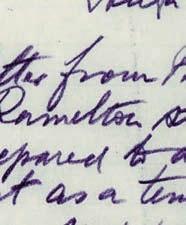 tter from
Ramelton
epared to a
t as a tem